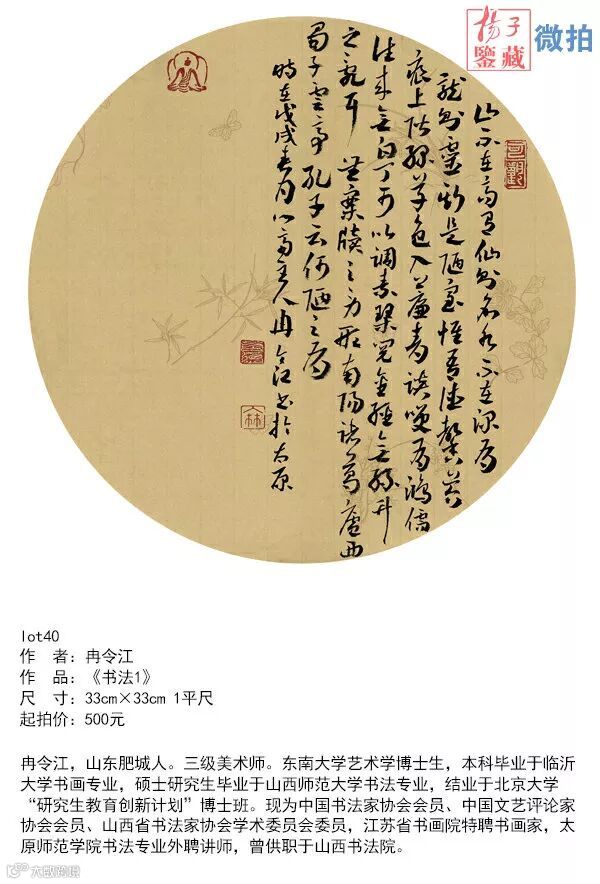 揚子
鑒藏
微拍
山不在高有仙則名水不在深有
龍則靈斯是陋室惟吾德馨苔
痕上階綠草色入簾青談笑有鴻儒
往來無白丁可以調素琴閱金經無絲竹
之亂耳無案牘之勞形南陽諸葛廬西
蜀子雲亭孔子云何陋之有
時在戊戌春月主人冉令江書於太原
lot40
作 者：冉令江
作 品：《书法1》
尺 寸：33cm×33cm 1平尺
起拍价：500元
冉令江，山东肥城人。三级美术师。东南大学艺术学博士生，本科毕业于临沂
大学书画专业，硕士研究生毕业于山西师范大学书法专业，结业于北京大学
“研究生教育创新计划”博士班。现为中国书法家协会会员、中国文艺评论家
协会会员、山西省书法家协会学术委员会委员，江苏省书画院特聘书画家，太
原师范学院书法专业外聘讲师，曾供职于山西书法院。